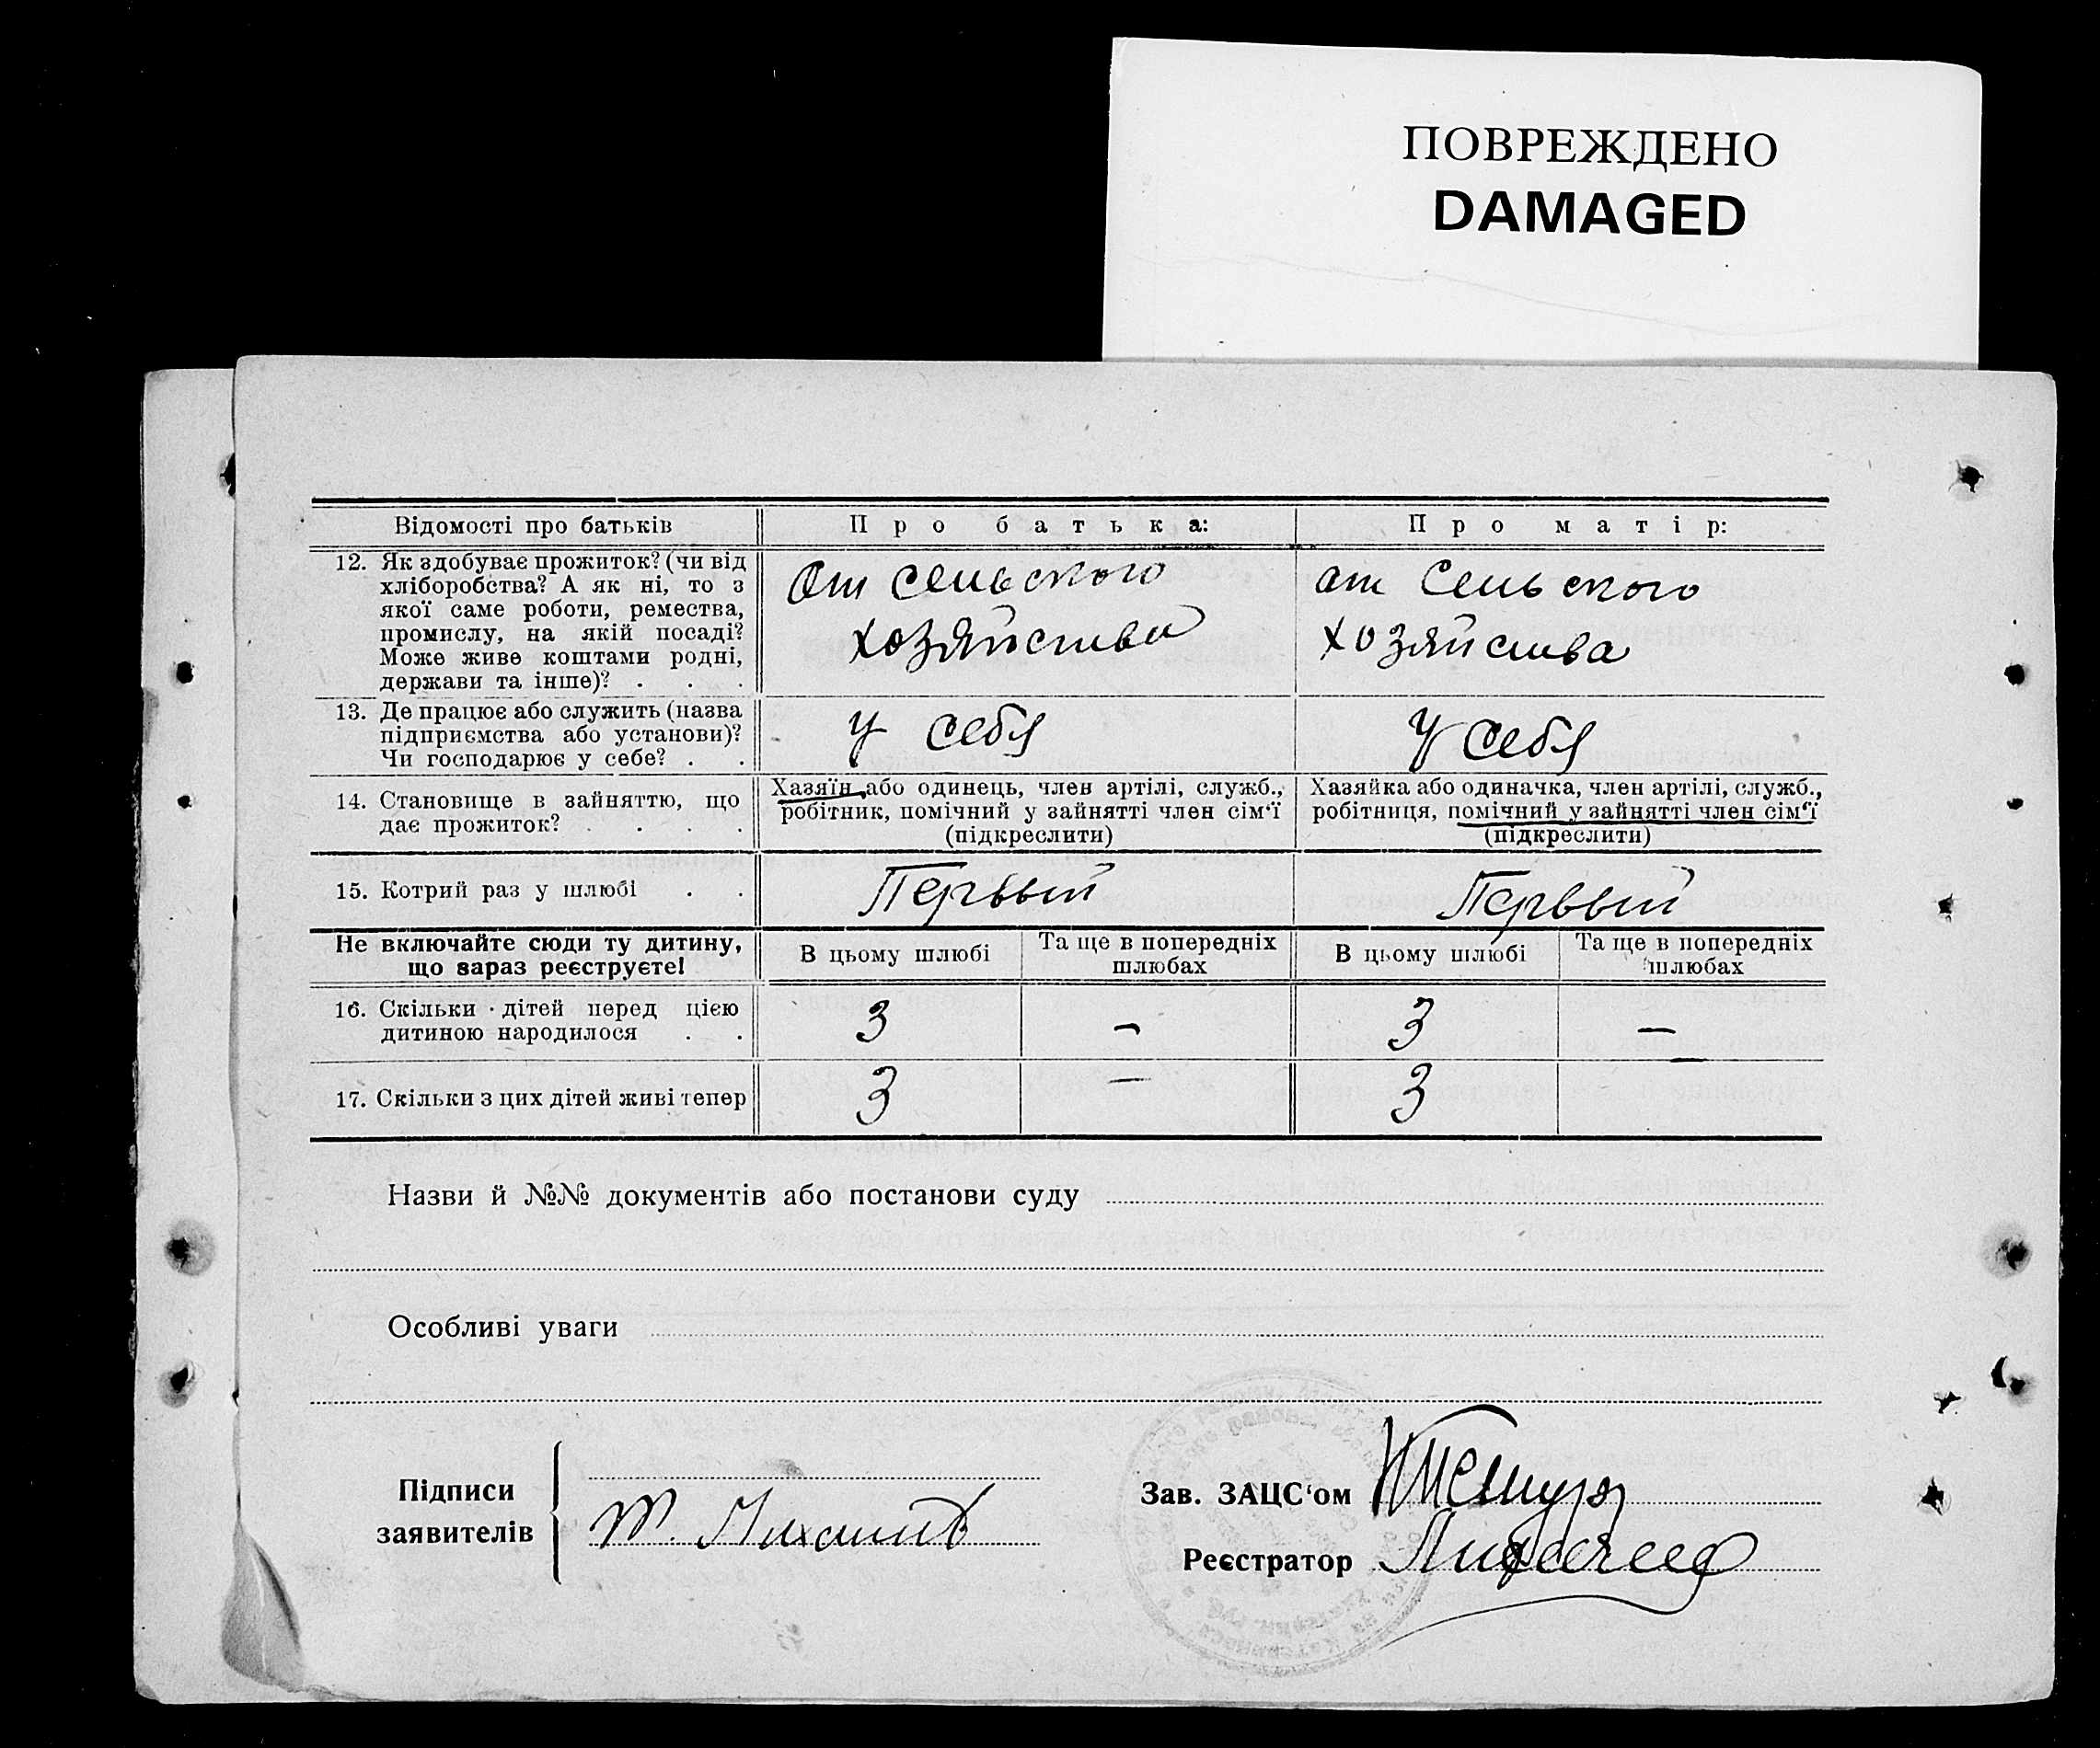 ПОВРЕЖДЕНО
DAMAGED
Відомості про батьків
Про батька:
Про матір:
12. Як здобуває прожиток? (чи від
хліборобства? А як ні, то з
якої саме роботи, ремества,
промислу, на якій посаді?
Може живе коштами родні,
держави та інше)? . . .
От сельского
хозяйства
от сельского
хозяйства
13. Де працює або служить (назва
підприємства або установи)?
Чи господарює у себе? . .
У себя
У себя
14. Становище в зайняттю, що
дає прожиток? . . . .
Хазяїн або одинець, член артілі, служб.,
робітник, помічний у зайнятті член сім‘ї
(підкреслити)
Хазяйка або одиначка, член артілі, служб.,
робітниця, помічний у зайнятті член сім‘ї
(підкреслити)
15. Котрий раз у шлюбі . .
Первый
Первый
Не включайте сюди ту дитину,
що зараз реєструєте!
В цьому шлюбі
Та ще в попередніх
шлюбах
В цьому шлюбі
Та ще в попередніх
шлюбах
16. Скільки дітей перед цією
дитиною народилося . .
3
–
3
–
17. Скільки з цих дітей живі тепер
3
–
3
–
Назви й №№ документів або постанови суду
Особливі уваги
Підписи
заявителів
Зав. ЗАЦС‘ом
Реєстратор